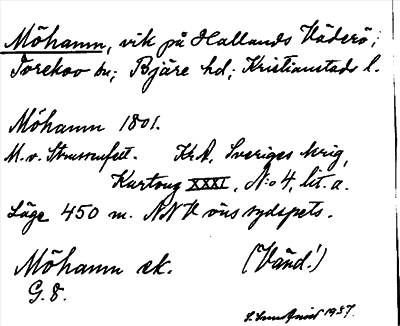 Möhamn, vik på Hallands Väderö;
Torekov sn; Bjäre hd; Kristianstads l.
Möhamn 1801.
M. v. Strussenfelt. KrA, Sveriges krig,
Kartong XXXI, N:o 4, lit. a.
Läge 450 m. NNV öns sydspets.
Möhamn ek.
G. 8. (Vänd!)
1937.